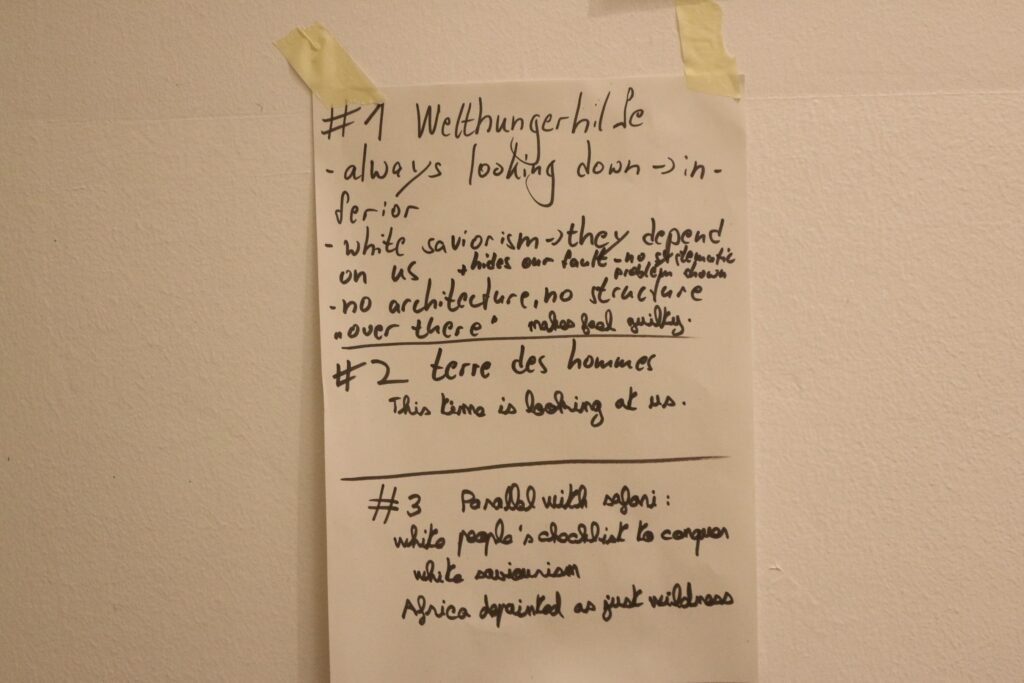 #1 Welthungerhilfe
- always looking down → in-
ferior
- white saviorism → they depend
on us → hides our fault - no systematic
problem shown
- no architecture, no structure
„over there" makes feel guilty.
#2 terre des hommes
This time is looking at us.
#3 Parallel with safari :
white people's checklist to conquer
white saviourism
Africa depainted as just wildness